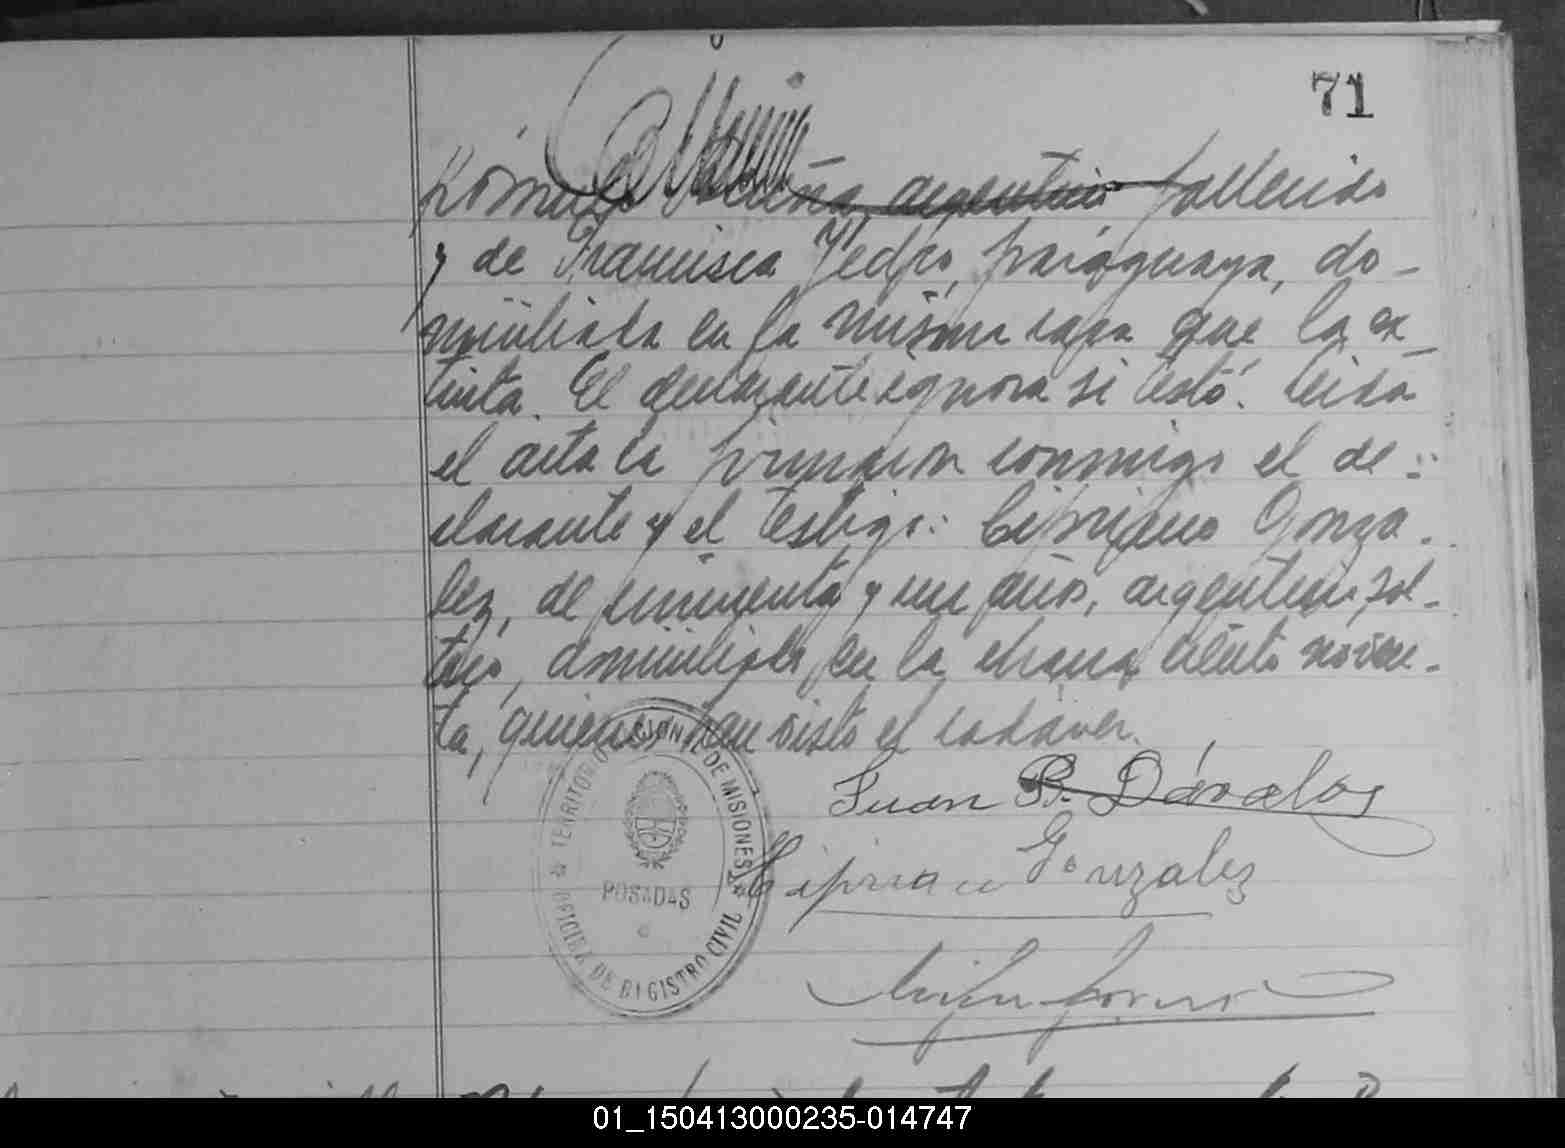 71
Rómulo argentino fallecido
y de Francisca Yedro, paraguaya, do-
miciliada en la misma casa que la ex
tinta. El declarante ignora si testó. Leida
el acta la firmaron conmigo el de-
clarante y el testigo: Cipriano Gonza-
lez, de cincuenta y un años, argentino, sol-
tero, domiciliado en la chacra ciento noven-
ta, quienes han visto el cadáver.
Juan B. Dávalos
Cipriano Gonzalez
TERRITORIO NACIONAL DE MISIONES
POSADAS
OFICINA DE REGISTRO CIVIL
01_150413000235-014747